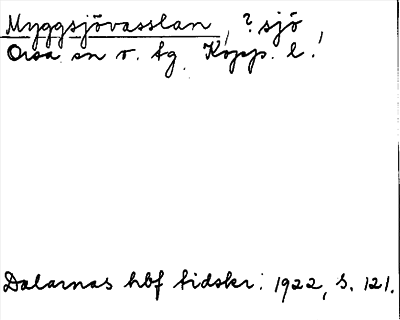 Myggsjövasslan, ? sjö
Orsa sn o. tg. Kopp. l.
Dalarnas hbf tidskr: 1922, s. 121.